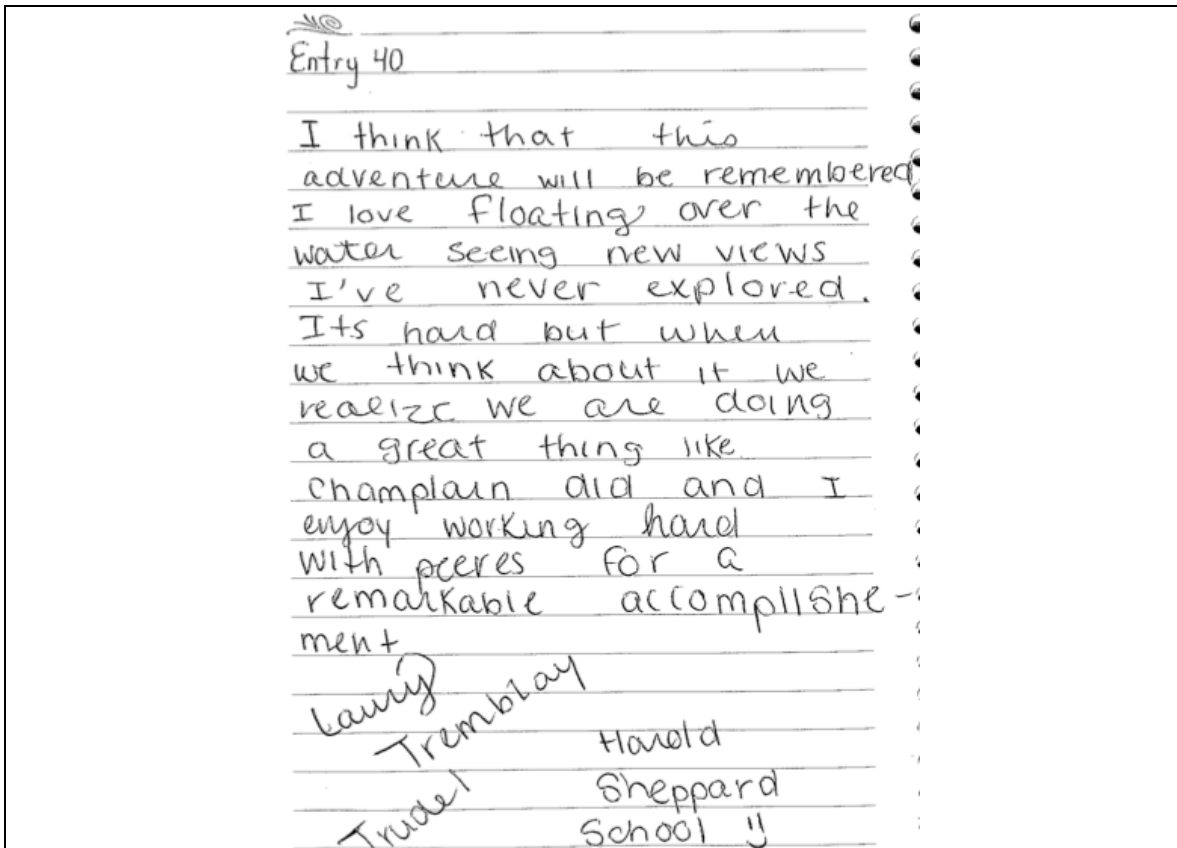 Entry 40
I think that this
adventure will be remembered
I love floating over the
water seeing new views
I've never explored.
Its hard but when
we think about it we
realize we are doing
a great thing like
Champlain did and I
enjoy working hard
with peeres for a
remarkable accomplishe-
ment
Laury
Tremblay
Trudel
Harold
Sheppard
School